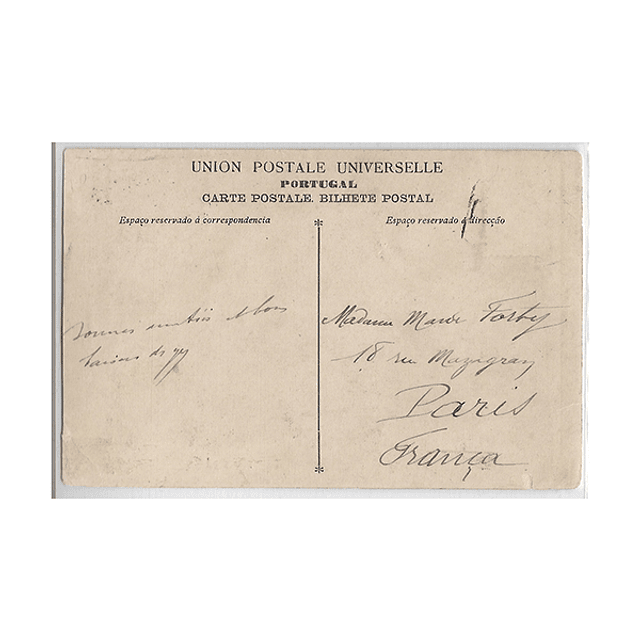 UNION POSTALE UNIVERSELLE
PORTUGAL
CARTE POSTALE. BILHETE POSTAL
Espaço reservado á correspondencia
Espaço reservado á direcção
bons
baisers de
Madame Marie Forby
18 rue Mazagran
Paris
França